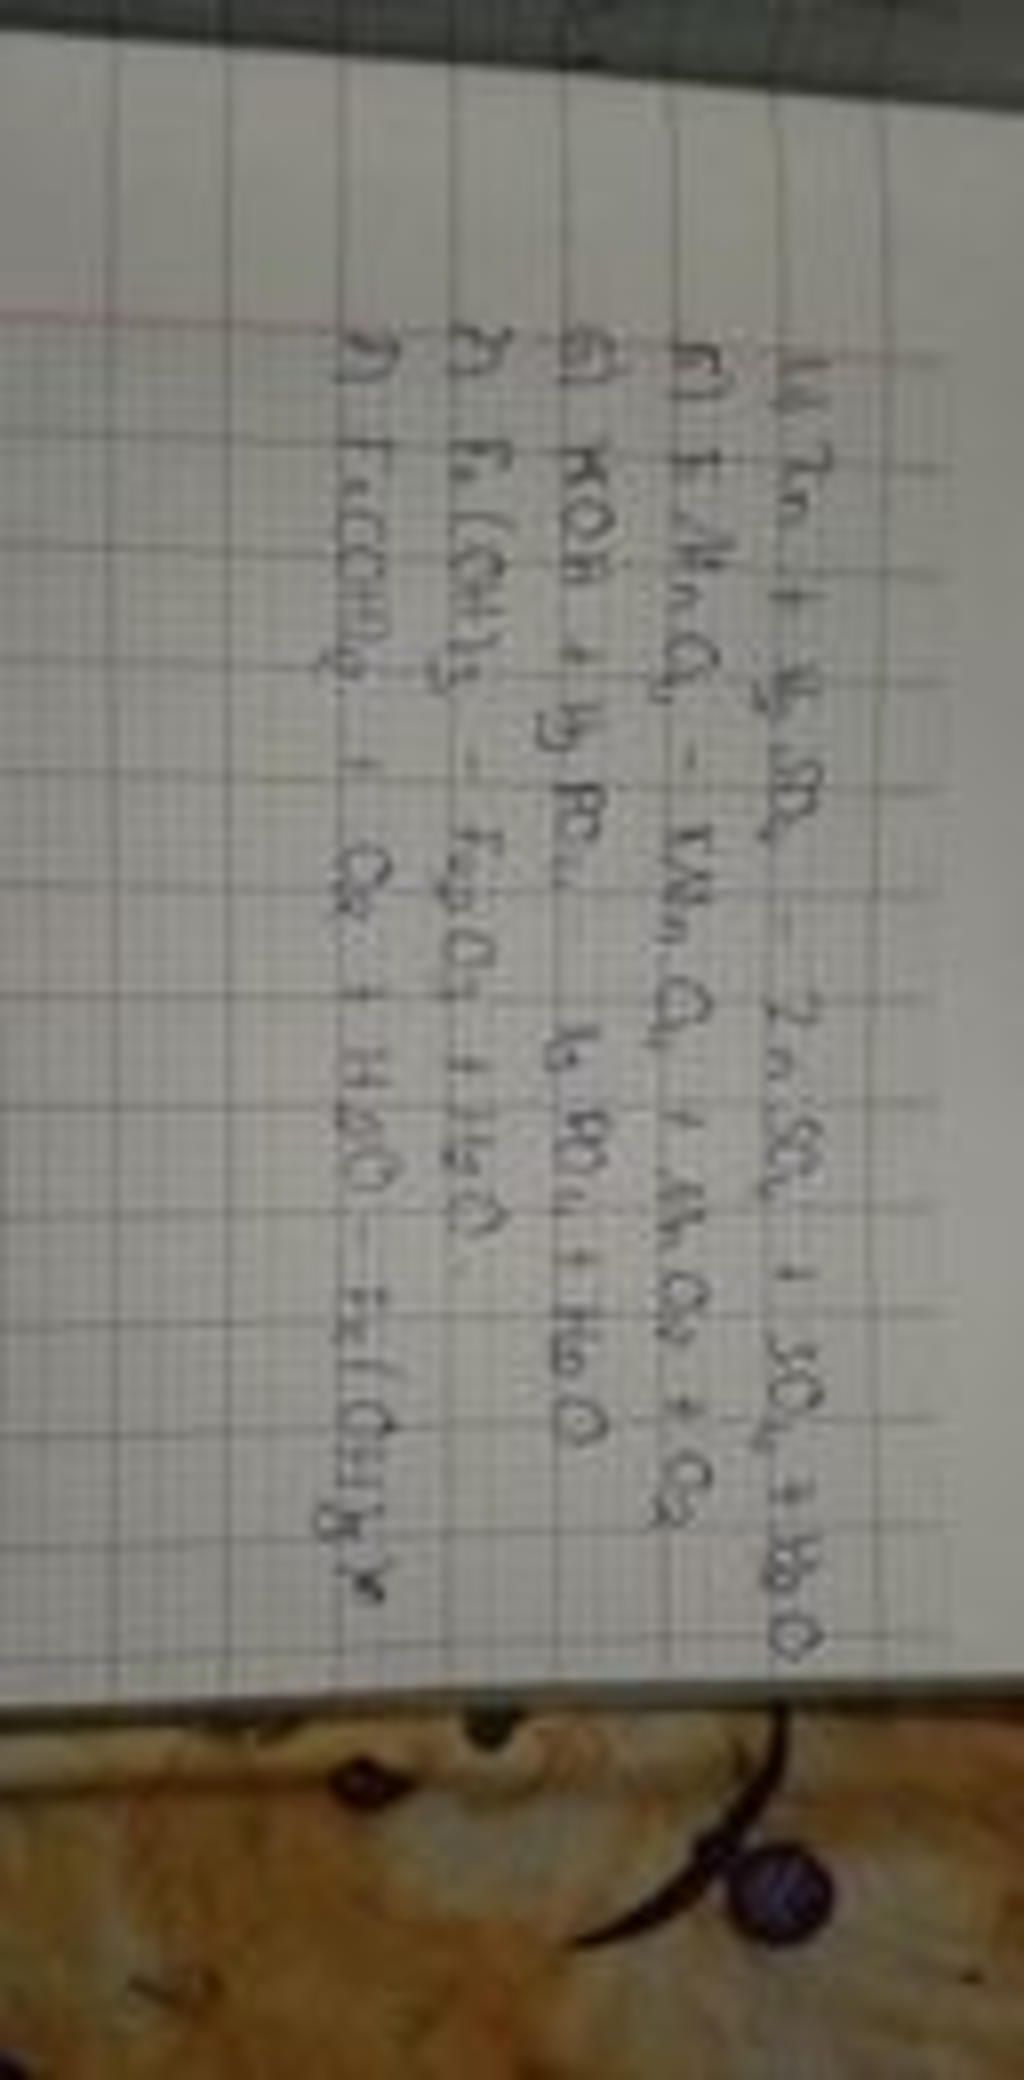 4) Zn + H2SO4 - ZnSO4 + SO2 + H2O
5) KMnO4 - KMnO4 + MnO2 + O2
6) KOH + H3PO4 K3PO4 + H2O
7) Fe(OH)3 - Fe2O3 + H2O
8) Fe(OH)2 + O2 + H2O - Fe(OH)3